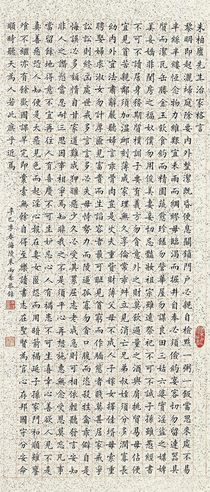 朱柏廬先生治家格言
黎明即起灑掃庭除要內外整潔既昏便息關鎖門戶必親自檢點一粥一飯當思來處不易
半絲半縷恆念物力維艱宜未雨而綢繆毋臨渴而掘井自奉必須儉約宴客切勿留連器具
質而潔瓦缶勝金玉飲食約而精園蔬愈珍饈勿營華屋勿謀良田三姑六婆實淫盜之媒婢
美妾嬌非閨房之福奴僕勿用俊美妻妾切忌豔妝祖宗雖遠祭祀不可不誠子孫雖愚經書
不可不讀居身務期質樸教子要有義方勿貪意外之財勿飲過量之酒與肩挑貿易毋佔便
宜見貧苦親鄰須加溫卹刻薄成家理無久享倫常乖舛立見消亡兄弟叔姪須分多潤寡長
幼內外宜法肅辭嚴聽婦言乖骨肉豈是丈夫重貲財薄父母不成人子嫁女擇佳婿毋索重
聘娶媳求淑女勿計厚奩見富貴而生諂容者最可恥遇貧窮而作驕態者賤莫甚居家戒爭
訟訟則終凶處世戒多言言多必失毋恃勢力而凌逼孤寡勿貪口腹而恣殺牲禽乖僻自是
悔誤必多頹惰自甘家道難成狎暱惡少久必受其累屈志老成急則可相依輕聽發言安知
非人之譖愬當忍耐三思因事相爭焉知非我之不是須平心再想施惠無念受恩莫忘凡事
當留餘地得意不宜再往人有喜慶不可生妒忌心人有禍患不可生喜幸心善欲人見不是
真善惡恐人知便是大惡見色而起淫心報在妻女匿怨而用暗箭禍延子孫家門和順雖饔
飧不繼亦有餘歡國課早完即囊橐無餘自得至樂讀書志在聖賢為官心存君國守分安命
順時聽天為人若此庶乎近焉